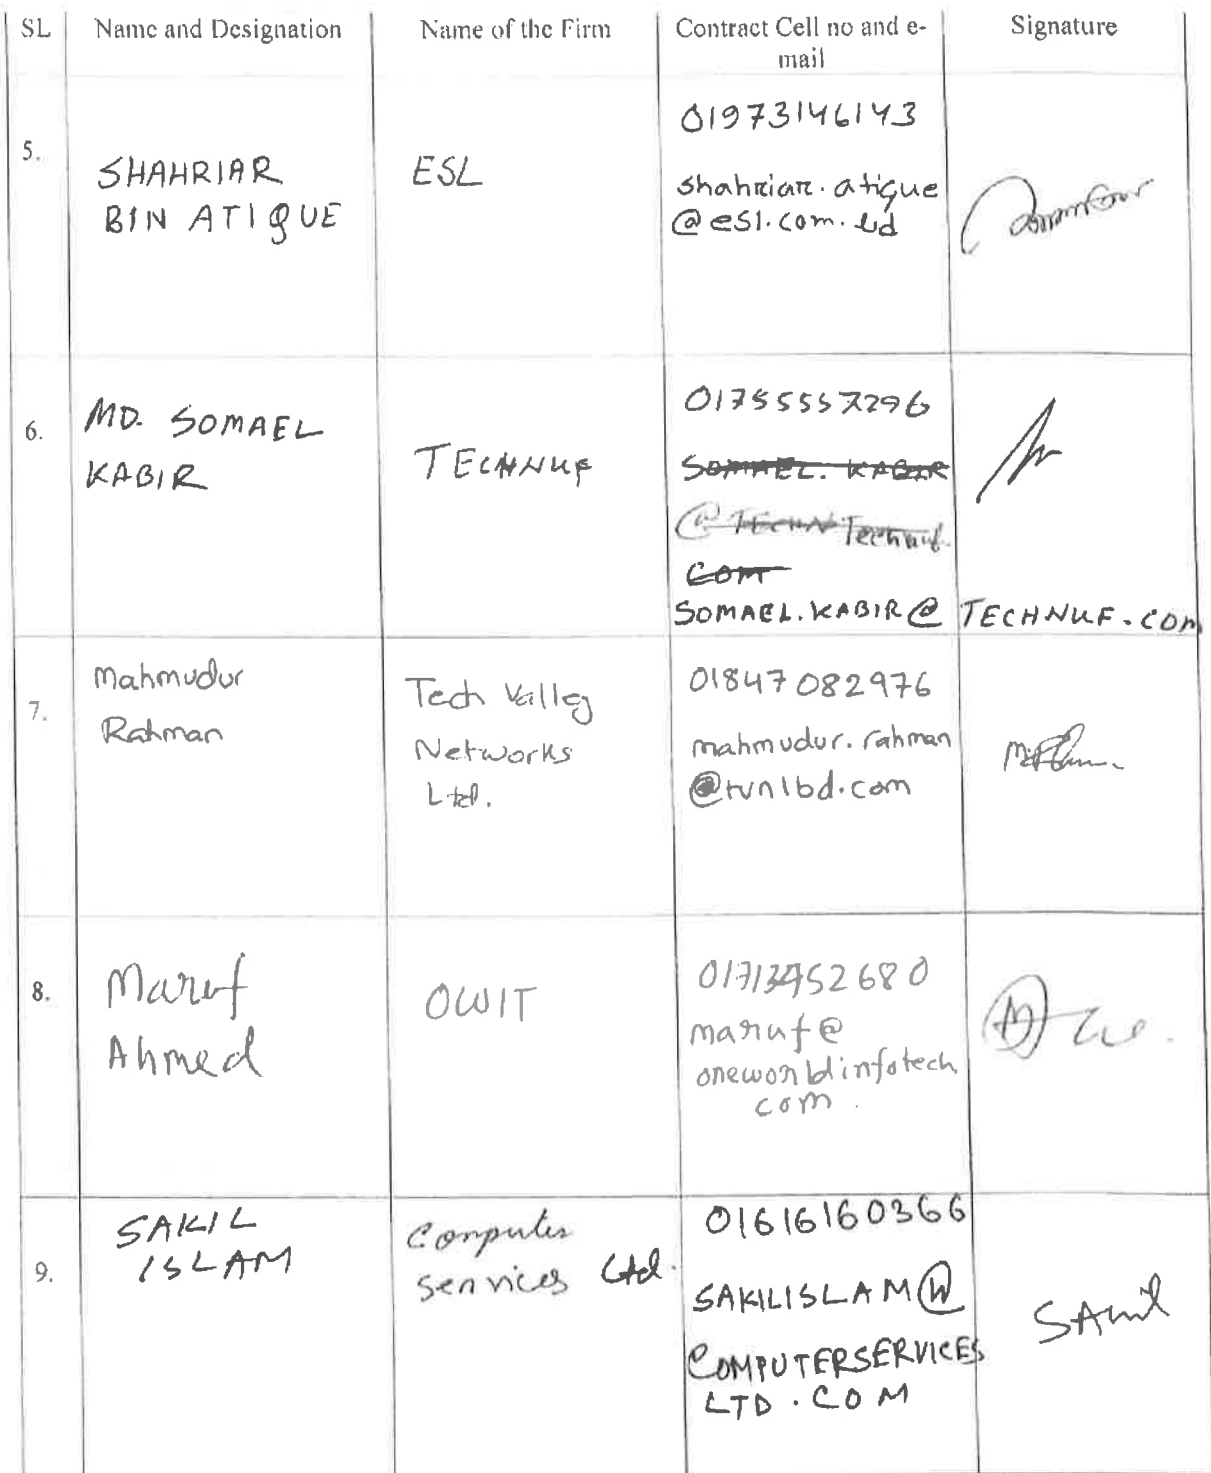 SL Name and Designation Name of the Firm Contract Cell no and e-
mail Signature
5.
SHAHRIAR
BIN ATIQUE
ESL
01973146143
shahriar.atique
@esl.com.bd
6.
MD. SOMAEL
KABIR
TECHNUF
01755557296
SOMAEL. KABIR
@ TECHN Technuf.
COM
SOMAEL.KABIR@ TECHNUF.COM
7.
Mahmudur
Rahman
Tech Valley
Networks
Ltd.
01847082976
mahmudur.rahman
@tvnlbd.com
8.
Maruf
Ahmed
OWIT
maruf@
oneworldinfotech
com.
9.
SAKIL
ISLAM
Computer
Services Ltd.
01616160366
SAKILISLAM@
COMPUTERSERVICES
LTD.COM